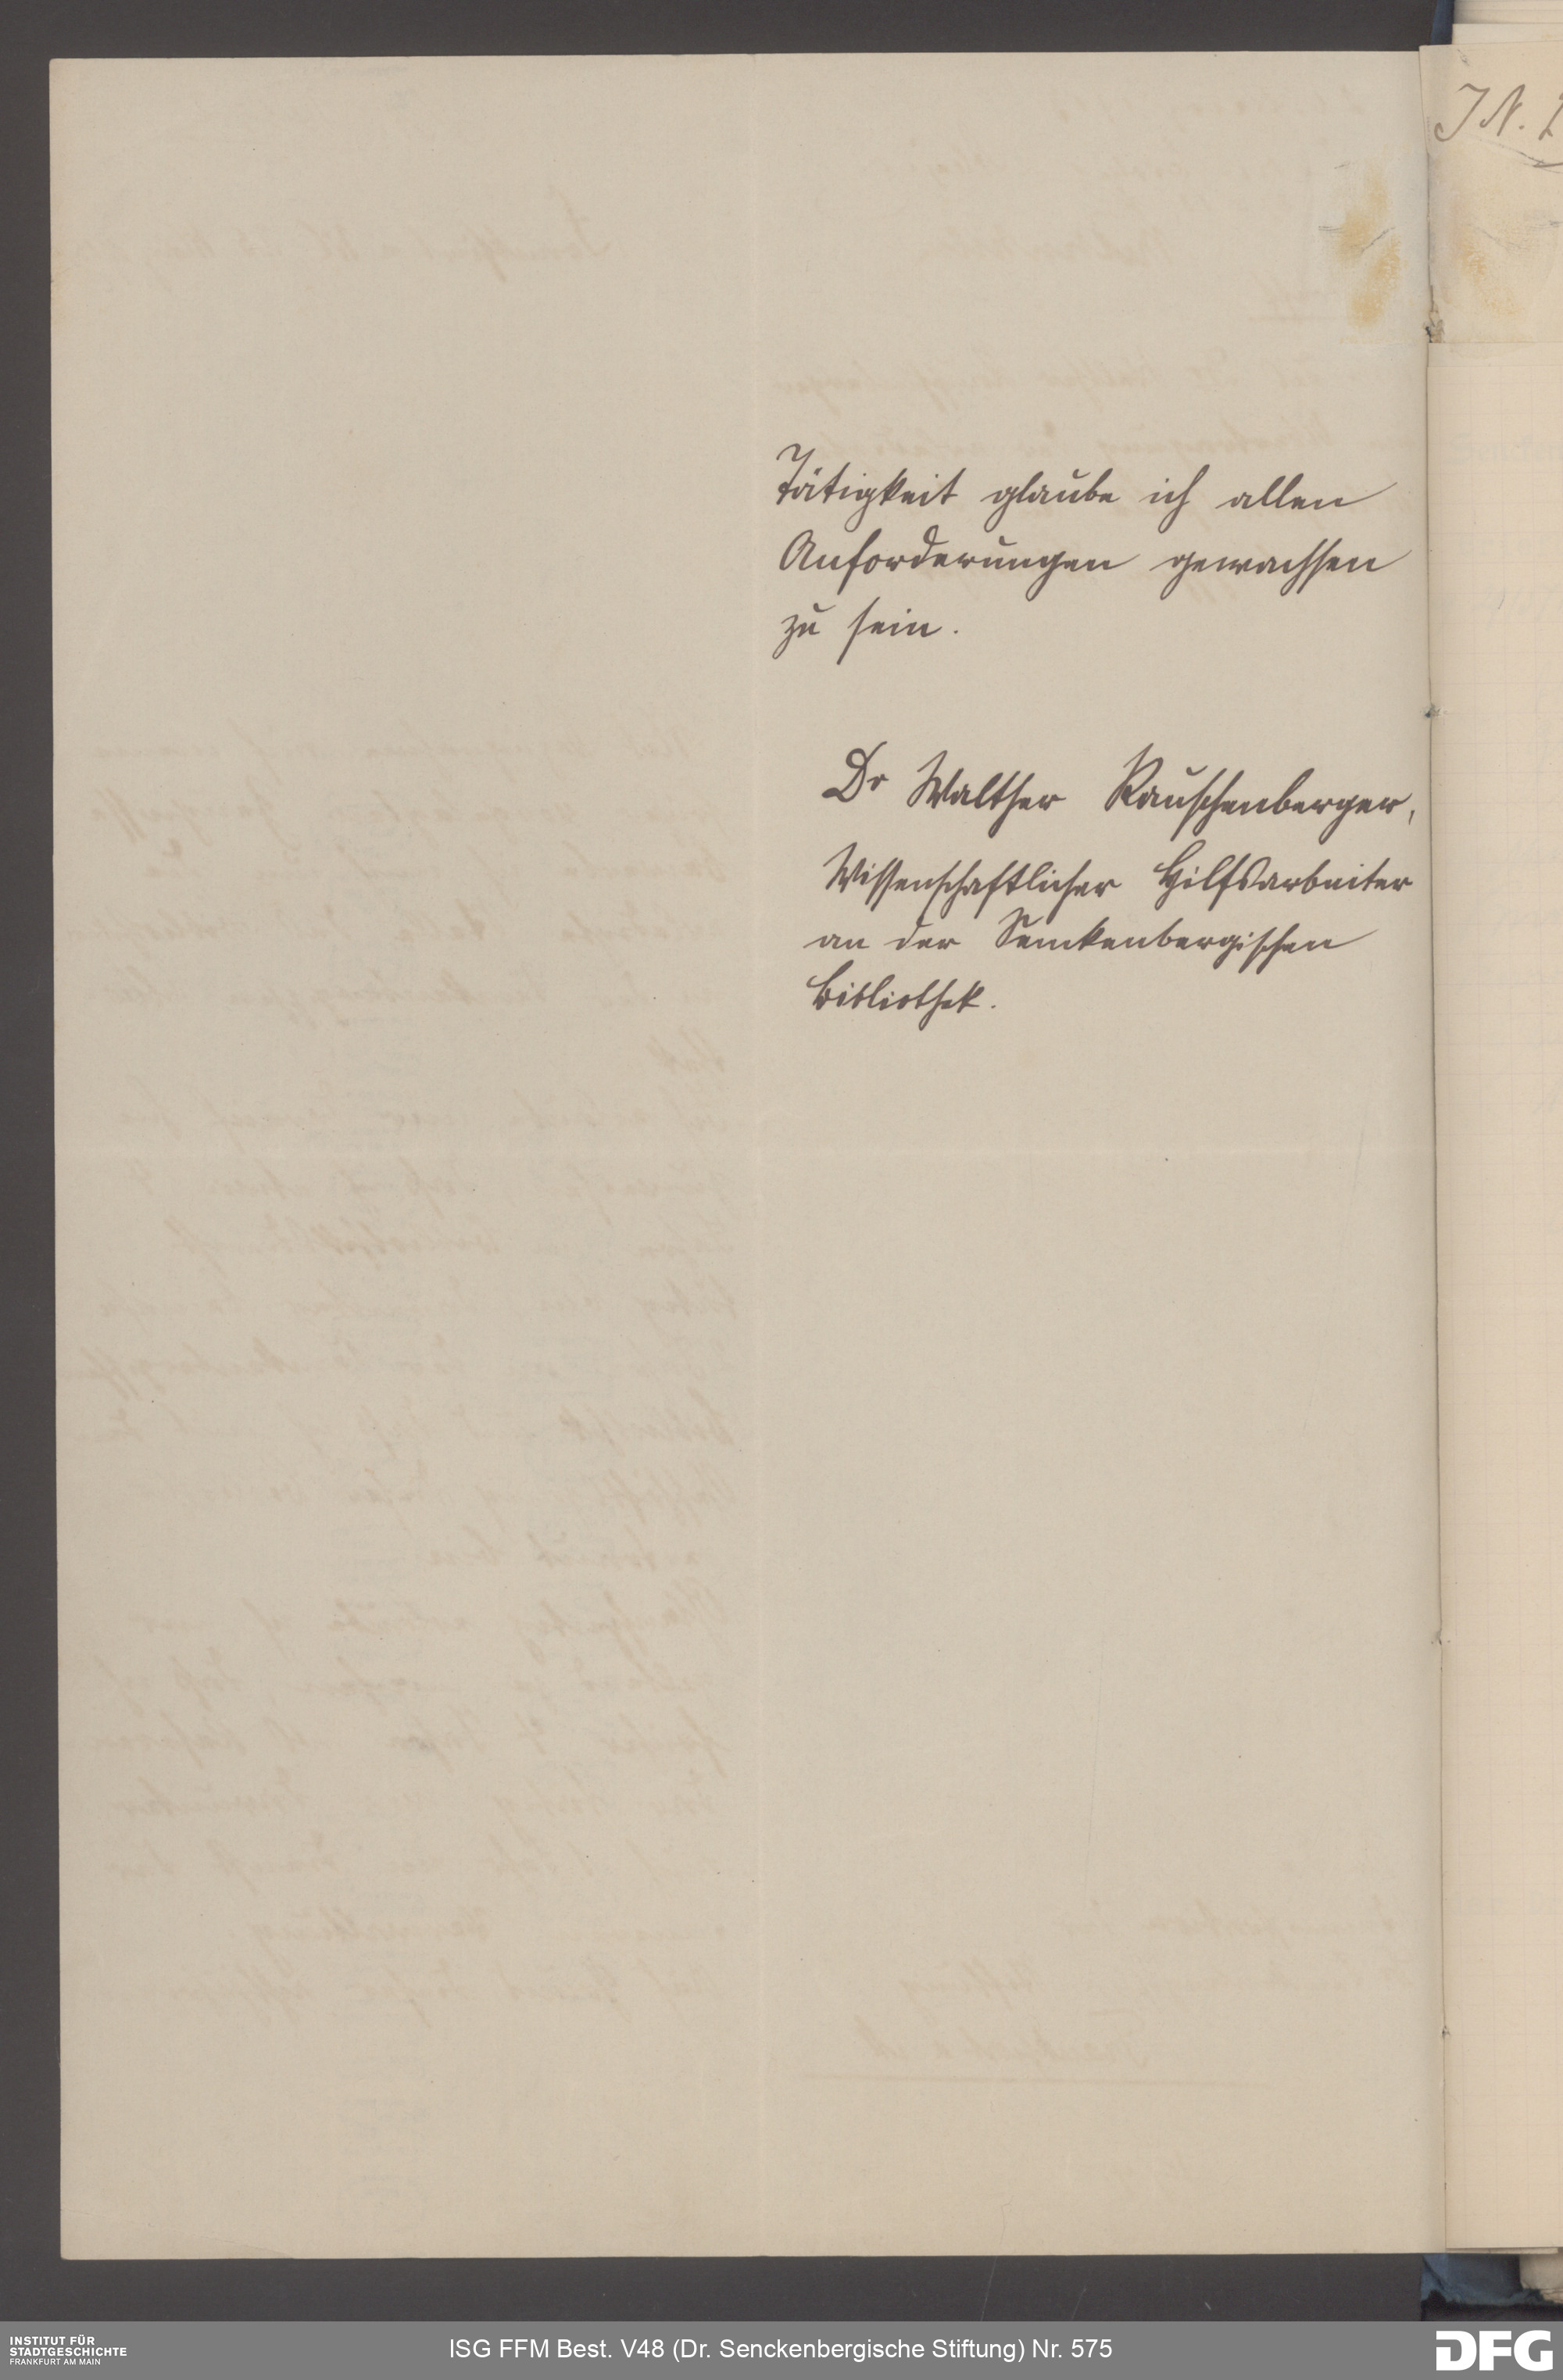 Tätigkeit glaube ich allen
Anforderungen gewachsen
zu sein.
Dr Walther Rauschenberger,
Wissenschaftlicher Hilfsarbeiter
an der Senckenbergischen
Bibliothek.
J N.
INSTITUT FÜR
STADTGESCHICHTE
FRANKFURT AM MAIN
ISG FFM Best. V48 (Dr. Senckenbergische Stiftung) Nr. 575
DFG